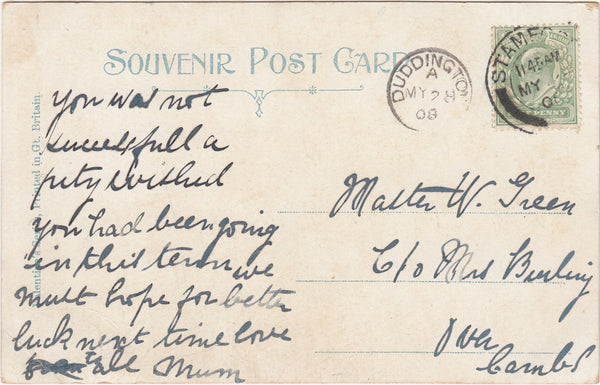 SOUVENIR POST CARD
DUDDINGTON
A
MY 28
08
STAMFO
11 45 AM
MY
PENNY
Printed in Gt. Britain.
You was not
successfull a
pity I wished
you had been going
in this term we
must hope for better
luck next time love
to all Mum
Master W. Green
C/o Mrs Burling
Over
Cambs